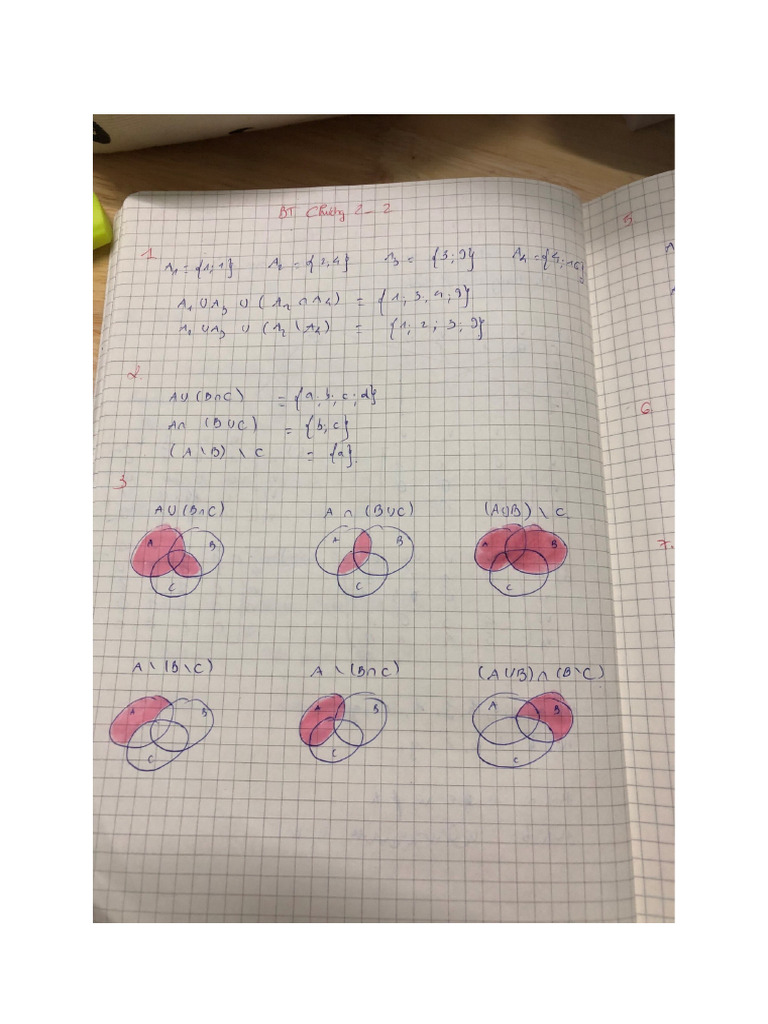 BT Chương 2_2
1. A₁ = {1; 1} A₂ = {2, 4} A₃ = {3; 9} A₄ = {4; 16}
A₁ ∪ A₃ ∪ (A₂ ∩ A₄) = {1; 3, 4; 9}
A₁ ∪ A₃ ∪ (A₂ \ A₄) = {1; 2; 3; 9}
2.
A ∪ (B ∩ C) = {a; b; c; d}
A ∩ (B ∪ C) = {b; c}
(A \ B) \ C = {a}.
3
A ∪ (B ∩ C) A ∩ (B ∪ C) (A ∪ B) \ C
A B C A B C A B C
A \ (B \ C) A \ (B ∩ C) (A ∪ B) ∩ (B \ C)
A B C A B C A B C
5.
6.
7.